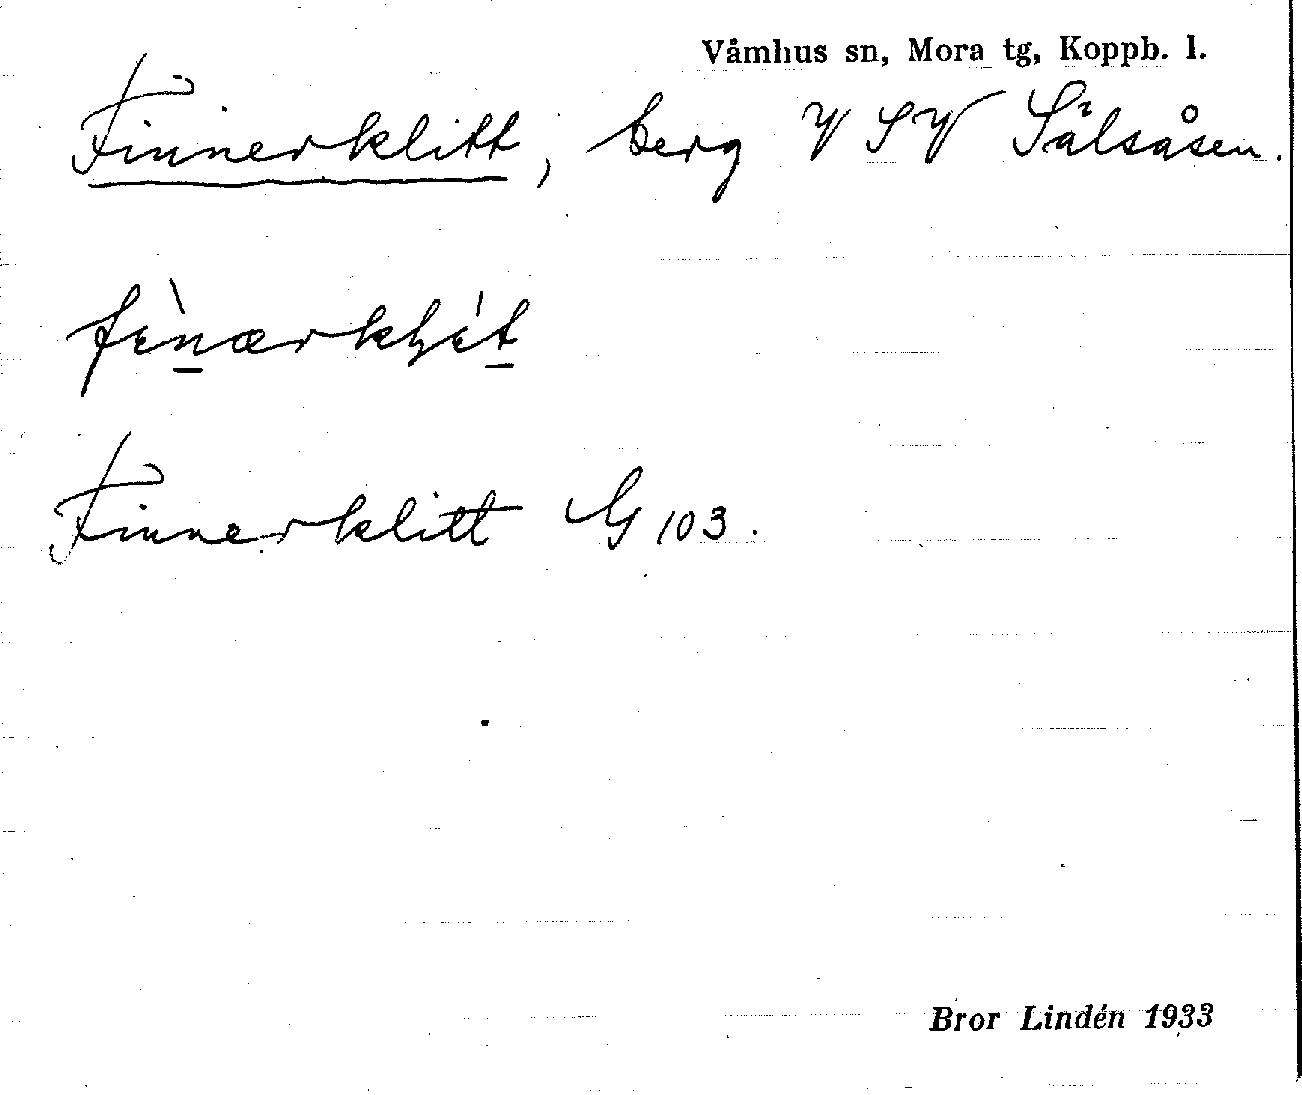 Våmhus sn, Mora tg, Koppb. l.
Finnerklitt, berg V SV Sälsåsen.
Finnerklitt G 103.
Bror Lindén 1933